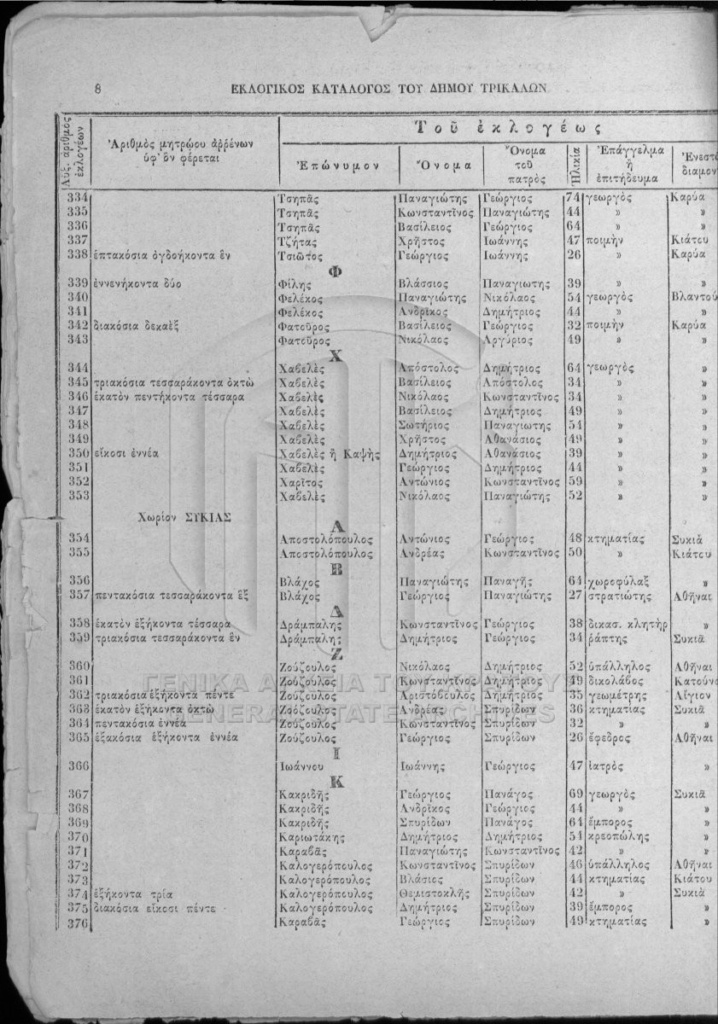 8 ΕΚΛΟΓΙΚΟΣ ΚΑΤΑΛΟΓΟΣ ΤΟΥ ΔΗΜΟΥ ΤΡΙΚΑΛΩΝ
Αὔξ. ἀριθμὸς ἐκλογέων
Ἀριθμὸς μητρώου ἀῤῥένων ὑφ' ὃν φέρεται
Τοῦ ἐκλογέως
Ἐπώνυμον Ὄνομα Ὄνομα τοῦ πατρὸς Ἡλικία Ἐπάγγελμα ἢ ἐπιτήδευμα
334 Τσηπᾶς Παναγιώτης Γεώργιος 74 γεωργὸς Καρύα
335 Τσηπᾶς Κωνσταντῖνος Παναγιώτης 44 » »
336 Τσηπᾶς Βασίλειος Γεώργιος 64 » »
337 Τζήτας Χρῆστος Ἰωάννης 47 ποιμὴν Κιάτου
338 ἑπτακόσια ὀγδοήκοντα ἓν Τσιῶτος Γεώργιος Ἰωάννης 26 » Καρύα
Φ
339 ἐννενήκοντα δύο Φίλης Βλάσσιος Παναγιωτης 39 » »
340 Φελέκος Παναγιώτης Νικόλαος 54 γεωργὸς Βλαντού
341 Φελέκος Ἀνδρίκος Δημήτριος 44 » »
342 διακόσια δεκαὲξ Φατοῦρος Βασίλειος Γεώργιος 32 ποιμὴν Καρύα
343 Φατοῦρος Νικόλαος Ἀργύριος 49 » »
Χ
344 Χαβελὲς Ἀπόστολος Δημήτριος 64 γεωργὸς »
345 τριακόσια τεσσαράκοντα ὀκτὼ Χαβελὲς Βασίλειος Ἀπόστολος 34 » »
346 ἑκατὸν πεντήκοντα τέσσαρα Χαβελὲς Νικόλαος Κωνσταντῖνος 34 » »
347 Χαβελὲς Βασίλειος Δημήτριος 49 » »
348 Χαβελὲς Σωτήριος Παναγιωτης 54 » »
349 Χαβελὲς Χρῆστος Ἀθανάσιος 49 » »
350 εἴκοσι ἐννέα Χαβελὲς ἢ Καψὴς Δημήτριος Ἀθανάσιος 39 » »
351 Χαβελὲς Γεώργιος Δημήτριος 44 » »
352 Χαρῖτος Ἀντώνιος Κωνσταντῖνος 59 » »
353 Χαβελὲς Νικόλαος Παναγιώτης 52 » »
Χωρίον ΣΥΚΙΑΣ
Α
354 Ἀποστολόπουλος Ἀντώνιος Γεώργιος 48 κτηματίας Συκιὰ
355 Ἀποστολόπουλος Ἀνδρέας Κωνσταντῖνος 50 » Κιάτου
Β
356 Βλάχος Παναγιώτης Παναγῆς 64 χωροφύλαξ »
357 πεντακόσια τεσσαράκοντα ἓξ Βλάχος Γεώργιος Παναγιώτης 27 στρατιώτης Ἀθῆναι
Δ
358 ἑκατὸν ἑξήκοντα τέσσαρα Δράμπαλης Κωνσταντῖνος Γεώργιος 38 δικασ. κλητὴρ »
359 τριακόσια τεσσαράκοντα ἓν Δράμπαλης Δημήτριος Γεώργιος 34 ῥάπτης Συκιὰ
Ζ
360 Ζούζουλος Νικόλαος Δημήτριος 52 ὑπάλληλος Ἀθῆναι
361 Ζούζουλος Κωνσταντῖνος Δημήτριος 49 δικολάβος Κατούν
362 τριακόσια ἑξήκοντα πέντε Ζούζουλος Ἀριστόβουλος Δημήτριος 35 γεωμέτρης Αἴγιον
363 ἑκατὸν ἑξήκοντα ὀκτὼ Ζούζουλος Ἀνδρέας Σπυρίδων 36 κτηματίας Συκιὰ
364 πεντακόσια ἐννέα Ζούζουλος Κωνσταντῖνος Σπυρίδων 32 » »
365 ἑξακόσια ἑξήκοντα ἐννέα Ζούζουλος Γεώργιος Σπυρίδων 26 ἔφεδρος Ἀθῆναι
Ι
366 Ἰωάννου Ἰωάννης Γεώργιος 47 ἰατρὸς »
Κ
367 Κακριδῆς Γεώργιος Πανάγος 69 γεωργὸς Συκιᾶ
368 Κακριδῆς Ἀνδρῖκος Γεώργιος 44 » »
369 Κακριδῆς Σπυρίδων Πανάγος 64 ἔμπορος »
370 Καριωτάκης Δημήτριος Δημήτριος 54 κρεοπώλης »
371 Καραβᾶς Παναγιώτης Κωνσταντῖνος 42 » »
372 Καλογερόπουλος Κωνσταντῖνος Σπυρίδων 46 ὑπάλληλος Ἀθῆναι
373 Καλογερόπουλος Βλάσιος Σπυρίδων 44 κτηματίας Κιάτου
374 ἑξήκοντα τρία Καλογερόπουλος Θεμιστοκλῆς Σπυρίδων 42 » Συκιὰ
375 διακόσια εἴκοσι πέντε Καλογερόπουλος Δημήτριος Σπυρίδων 39 ἔμπορος »
376 Καραβᾶς Γεώργιος Σπυρίδων 49 κτηματίας »